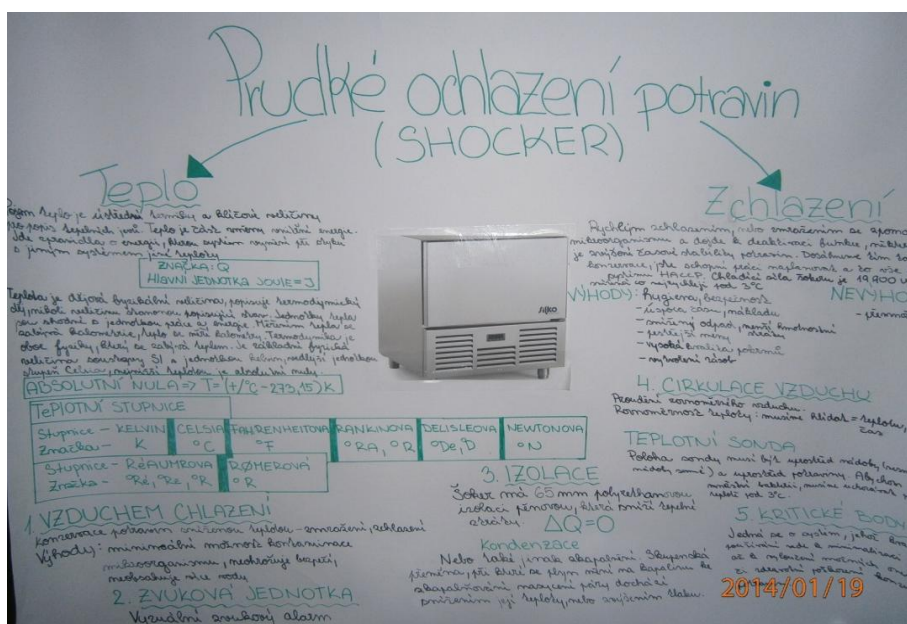 Prudké ochlazení potravin
(SHOCKER)
Teplo
Pojem teplo je ústřední termíny a klíčové veličiny
pro popis tepelných jevů. Teplo je část změny vnitřní energie.
Jde zpravidla o energii, kterou systém vymění při styku
s jiným systémem jiné teploty
ZNAČKA: Q
HLAVNÍ JEDNOTKA JOULE = J
Teplota je dějová fyzikální veličina, popisuje termodynamický
děj, nikoli veličinu stavovou popisující stav. Jednotky tepla
jsou shodné s jednotkou práce a energie. Měřením tepla se
zabývá kalometrie, teplo se měří kalometry. Termodynamika je
obor fyziky, který se zabývá teplem. je základní fyzická
veličina soustavy SI s jednotkou kelvin, vedlejší jednotkou
stupeň Celsia, nejnižší teplotou je absolutní nula
ABSOLUTNÍ NULA => T=(+/°C-273,15)K
TEPLOTNÍ STUPNICE
Stupnice - KELVIN CELSIA FAHRENHEITOVA RANKINOVA DELISLEOVA NEWTONOVA
Značka - K °C °F °RA, °R °De, D °N
Stupnice - RÉAUMROVA RØMEROVÁ
Značka - °Ré, °Re, °R °R
1. VZDUCHEM CHLAZENÍ
konzervace potravin sníženou teplotou - zmražení, zchlazení
Výhody: minimální možnost kontaminace
mikroorganismu, neohrožuje bezpečí,
neobsahuje více vody
2. ZVUKOVÁ JEDNOTKA
Vizuální zvukový alarm
silko
3. IZOLACE
Šoker má 65 mm polyrethanovou
izolaci pěnovou, která sníží tepelné
ztráty. ΔQ=0
Kondenzace
Nebo také jinak zkapalnění. Skupenská
přeměna, při které se plyn mění na kapalinu. Ke
zkapalňování nasycené páry dochází
snížením její teploty, nebo zvýšením tlaku.
Zchlazení
Rychlým zchlazením, nebo zmražením se zpoma
mikroorganismu a dojde k deaktivaci
je zvýšení časové stability potravin. Dosáhneme tím
konzervace, jste schopni práci naplánovat a to vše
systému HACCP. Chladící síla Šokeru je 19,900 W
co nejrychleji pod 3°C
VÝHODY: - hygiena, bezpečnost
- úspora času, nákladu
- snížený odpad, menší hmotnostní
ztráty
- pestřejší menu
- vysoká kvalita pokrmů
- vytvoření zásob
NEVÝHO
4. CIRKULACE VZDUCHU
Proudění rovnoměrného vzduchu.
Rovnoměrnost teploty: musíme hlídat = teplotu,
čas
TEPLOTNÍ SONDA
Poloha sondy musí být uprostřed nádoby (nesmí
nádoby sami) a uprostřed potraviny. Abychom
bakterií, musíme uchovávat
teplotě pod 3°C.
5. KRITICKÉ BODY
Jedná se o systém, jehož
používání vede k minimalizaci
2014/01/19